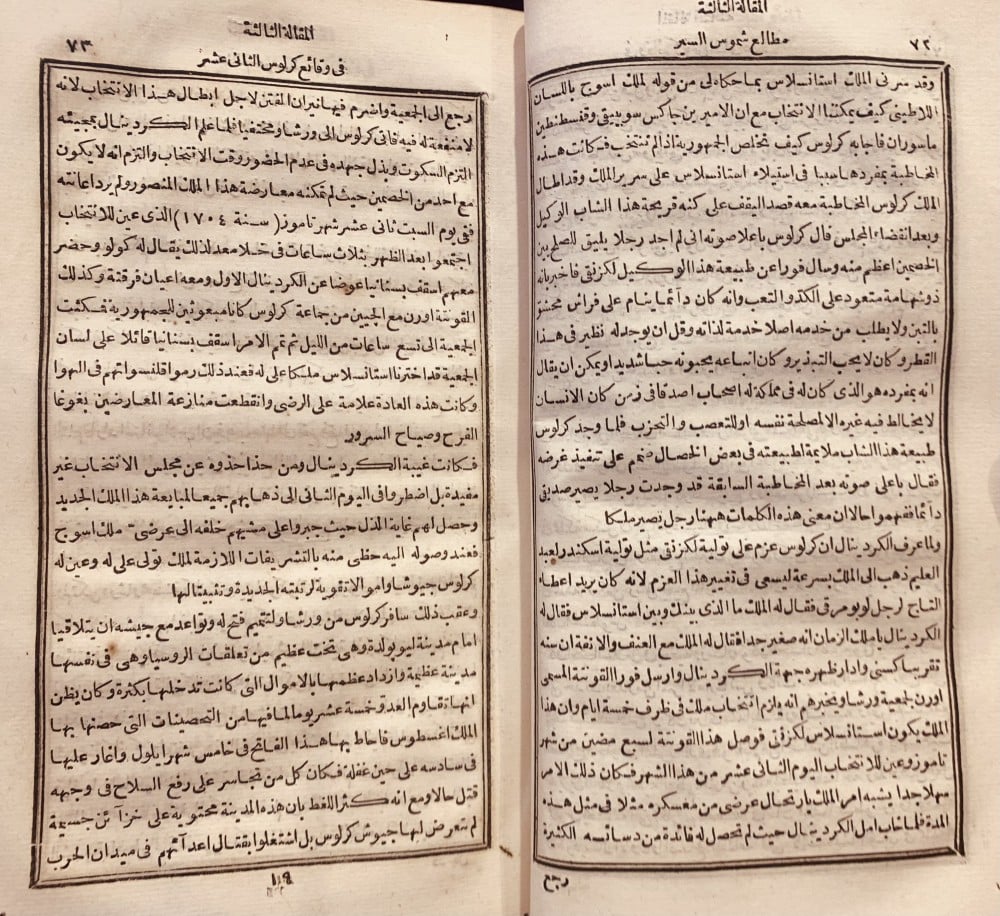 المقالة الثالثة
٧٢
مطالع شموس السير
وقد سرنى الملك استانسلاس بما حكاه لى من قوله لملك اسوج باللسان
اللاطينى كيف يمكننا الانتخاب مع ان الامير بن جاكس سوبيسقى وقنسطنطين
ماسوران فاجابه كرلوس كيف تخلص الجمهورية اذا لم تنتخب فكانت هذه
المخاطبة بمفردها سببا فى استيلاء استانسلاس على سرير الملك وقد اطال
الملك كرلوس المخاطبة معه قصد اليقف على كنه قريحة هذا الشاب الوكيل
وبعد انقضاء المجلس قال كرلوس باعلا صوته انى لم اجد رجلا يليق للصلح بين
الخصمين اعظم منه وسال فورا عن طبيعة هذا الوكيل لكزنقى فاخبر بانه
ذو شهامة متعود على الكد والتعب وانه كان دآئما ينام على فراش محشو
بالتبن ولا يطلب من خدمه اصلا خدمة لذاته وقل ان يوجد له نظير فى هذا
القطر وكان لا يحب التبذير وكان اتباعه يحبونه حبا شديدا ويمكن ان يقال
انه بمفرده هو الذى كان له فى مملكة له اصحاب اصدقا فى زمن كان الانسان
لا يخالط فيه غيره الا لمصلحة نفسه او للتعصب والتحزب فلما وجد كرلوس
طبيعة هذا الشاب ملايمة لطبيعته فى بعض الخصال صمم على تنفيذ غرضه
فقال باعلى صوته بعد المخاطبة السابقة قد وجدت رجلا يصير صديقى
دآئما ففهموا حالا ان معنى هذه الكلمات ههنا رجل يصير ملكا
ولما عرف الكردينال ان كرلوس عزم على تولية لكزنقى مثل تولية اسكندر لعبد
العليم ذهب الى الملك بسرعة ليسعى فى تغيير هذا العزم لانه كان يريد اعطاء
التاج لرجل لوبومرقى فقال له الملك ما الذى بينك وبين استانسلاس فقال له
الكردينال يا ملك الزمان انه صغير جدا فقال له الملك مع العنف والانفة ان سنه
تقريبا كسنى وادار ظهره جهة الكردينال وارسل فورا القونتة المسمى
اورن لجمعية ورشاو يخبرهم انه يلزم انتخاب ملك فى ظرف خمسة ايام وان هذا
الملك يكون استانسلاس لكزنقى فوصل هذا القونتة لسبع مضين من شهر
تاموز وعين للانتخاب اليوم الثانى عشر من هذا الشهر فكان ذلك الامر
سهلا جدا يشبه امر الملك بارتحال عرضى من معسكره مثلا فى مثل هذه
المدة فلما خاب امل الكردينال حيث لم تحصل له فائدة من دسائسه الكثيرة
رجع
المقالة الثالثة
٧٣
فى وقائع كرلوس الثانى عشر
رجع الى الجمعية واضرم فيها نيران الفتن لاجل ابطال هذا الانتخاب لانه
لا منفعة له فيه فاتى كرلوس الى ورشاو مختفيا فلما علم الكردينال بمجيئه
التزم السكوت وبذل جهده فى عدم الحضور وقت الانتخاب والتزم انه لا يكون
مع احد من الخصمين حيث لم تمكنه معارضة هذا الملك المنصور ولم يرد اعانته
ففى يوم السبت ثانى عشر شهر تاموز (سنة ١٧٠٤) الذى عين للانتخاب
اجتمعوا بعد الظهر بثلاث ساعات فى خلا معد لذلك يقال له كولو وحضر
معهم اسقف بسنانيا عوضا عن الكردينال الاول ومعه اعيان فرقته وكذلك
القونتة اورن مع الجيين من جماعة كرلوس كانا مبعوثين للجمهورية فمكثت
الجمعية الى تسع ساعات من الليل ثم تمم الامر اسقف بسنانيا قائلا على لسان
الجمعية قد اخترنا استانسلاس ملكا على له فعند ذلك رموا قلنسواتهم فى الهوا
وكانت هذه العادة علامة على الرضى وانقطعت منازعة المعارضين بغوغا
الفرح وصياح السرور
فكانت غيبة الكردينال ومن حذا حذوه عن مجلس الانتخاب غير
مفيدة بل اضطروا فى اليوم الثانى الى ذهابهم جميعا لمبايعة هذا الملك الجديد
وحصل لهم غاية الذل حيث جبروا على مشيهم خلفه الى عرضى ملك اسوج
فعند وصوله اليه حظى منه بالتشريفات اللازمة لملك تولى على له وعين له
كرلوس جيوشا واموالا تقوية لرتبته الجديدة وتثبيتا لها
وعقب ذلك سافر كرلوس من ورشاو لتتميم فتح له وتواعد مع جيشه ان يتلاقيا
امام مدينة ليوبولدة وهى تخت عظيم من تعلقات الروسيا وهى فى نفسها
مدينة عظيمة وازداد عظمها بالاموال التى كانت تدخلها بكثرة وكان يظن
انها تقاوم العدو خمسة عشر يوما لما فيها من التحصينات التى حصنها بها
الملك اغسطوس فاحاط بها هذا الفاتح فى خامس شهر ايلول واغار عليها
فى سادسه على حين غفلة فكان كل من تجاسر على رفع السلاح فى وجهه
قتل حالا ومع انه كثر اللغط بان هذه المدينة محتوية على خزآئن جسيمة
لم تتعرض لها جيوش كرلوس بل اشتغلوا بقتال اعدآئهم فى ميدان الحرب